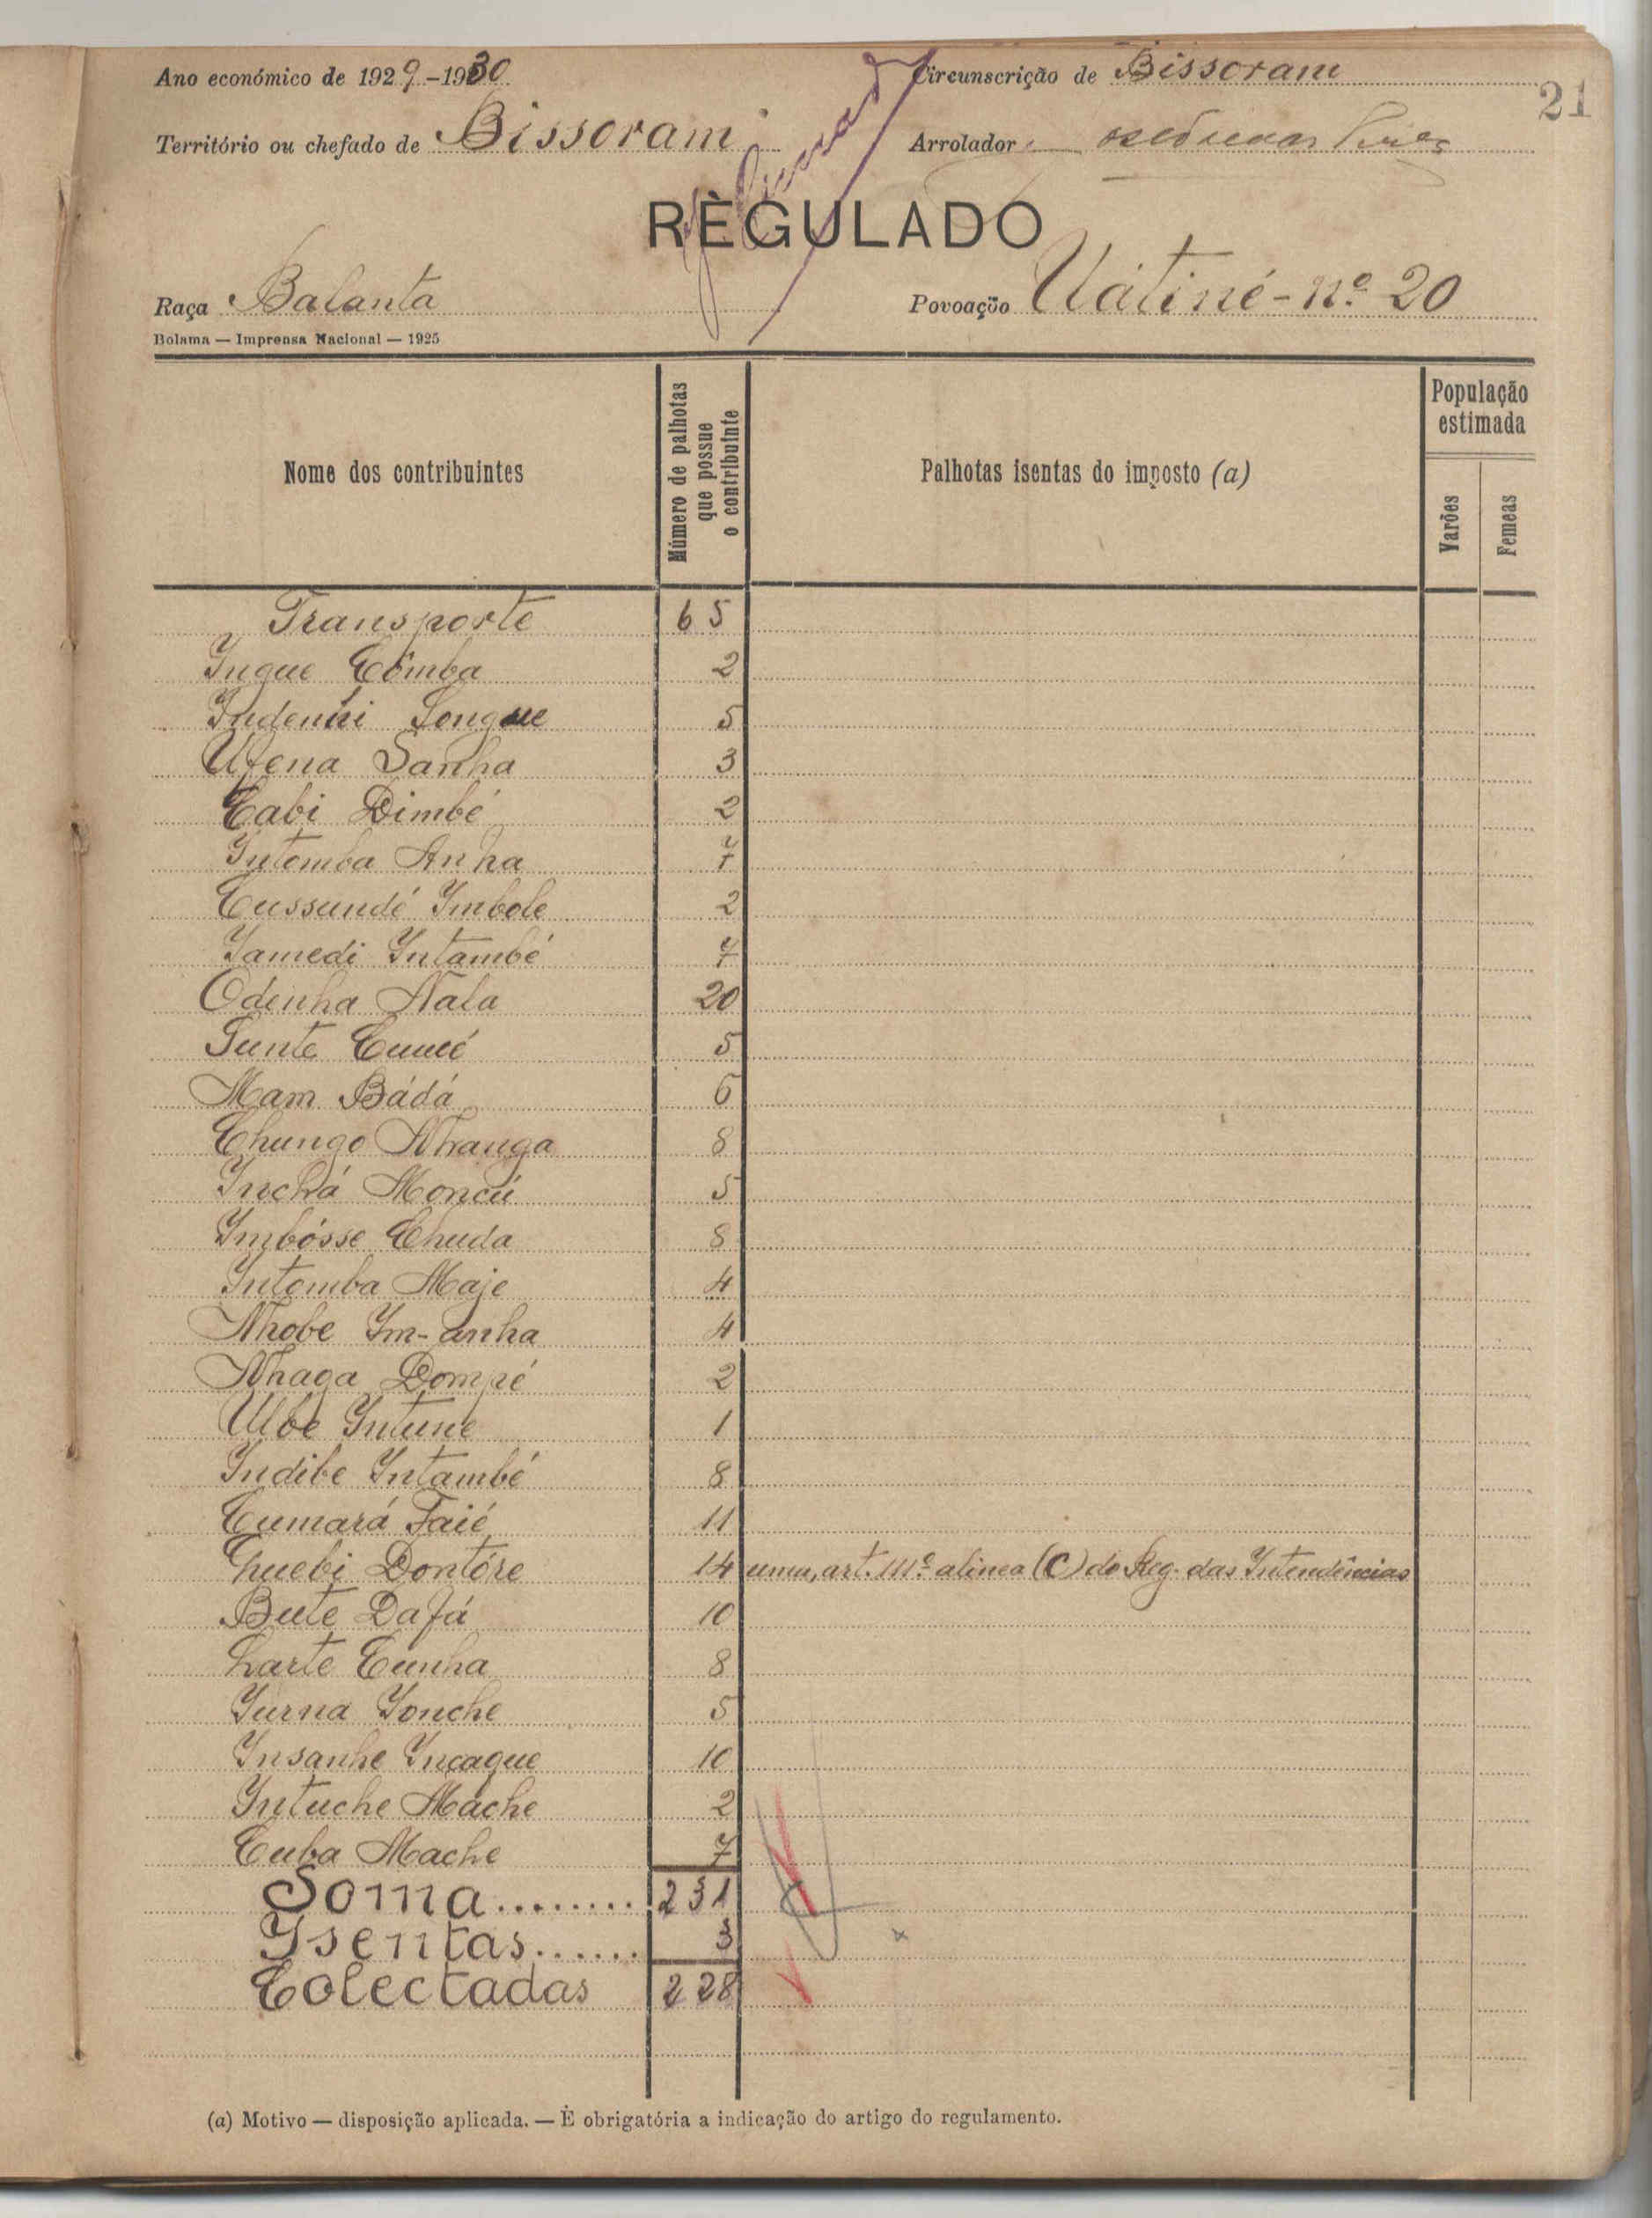 Ano económico de 1929-1930 Circunscrição de Bissoram
21
Território ou chefado de Bissoram Arrolador
RÈGULADO
Raça Balanta Povoação Uátiné - nº 20
Bolama — Imprensa Nacional — 1925
Nome dos contribuintes
Número de palhotas que possue o contribuinte
Palhotas isentas do imposto (a)
População estimada
Varões
Femeas
Transporte 65
Ingue Cômba 2
Songue 5
Ufena Sanha 3
Cabi Dimbé 2
Intomba Anha 7
Cussundé Imbole 2
Iamedi Intambé 7
Odenha Nala 20
Tunte 5
Mam Bádá 6
Chungo Nhanga 8
Inchá Moncú 5
Imbósse Chuda 8
Intomba Maje 4
Nhobe Im-anha 4
Nhaga Dompé 2
Ulbe Intune 1
Indibe Intambé 8
Cumará Faié 11
Chuebi Dontóre 14 uma, art. 111º alinea (C) do Reg. das Intendências
Bute Dafá 10
Larte Cunha 8
Iurna Ionche 5
Insanhe Incaque 10
Intuche Mache 2
Cuba Mache 7
Soma........ 231
Isentas...... 3
Colectadas 228
(a) Motivo — disposição aplicada. — É obrigatória a indicação do artigo do regulamento.